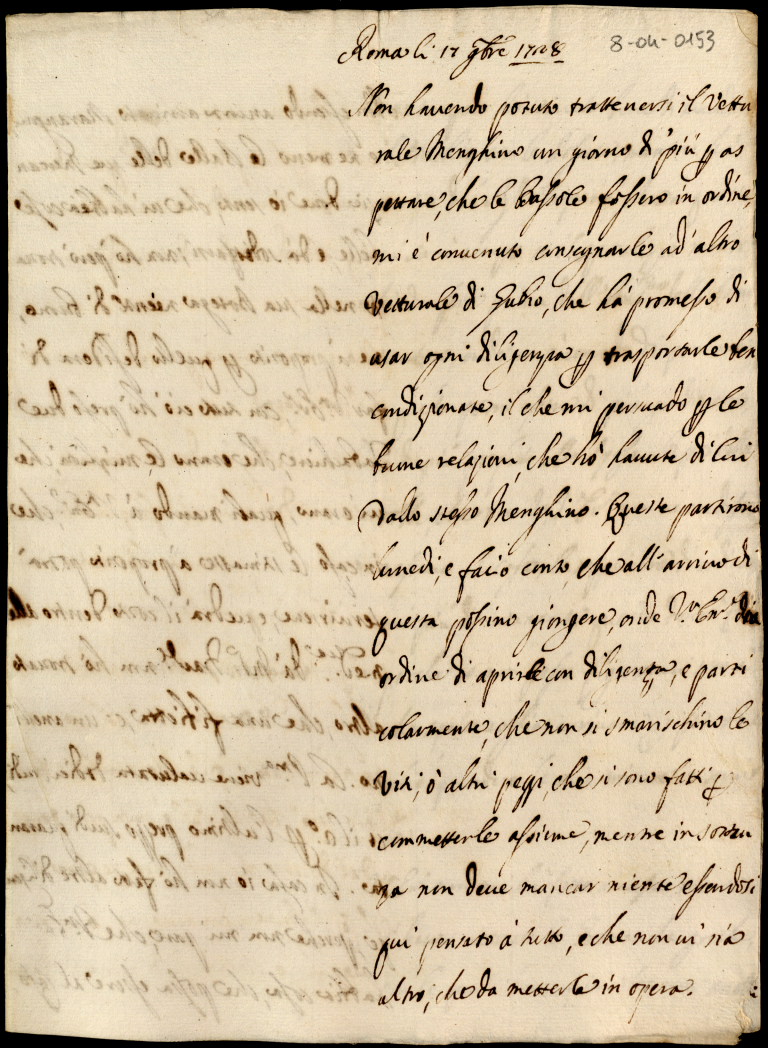 8-04-0153
Roma li 17 9bre 1728
Non havendo potuto trattenersi il Vettu
rale Menghino un giorno di più p as
pettare, che le bussole fossero in ordine,
mi è convenuto consegnarle ad altro
Vetturale di Gubio, che hà promesso di
usar ogni diligenza p trasportarle ben
condizionate, il che mi persuado p le
buone relazioni, che hò havute di lui
dallo stesso Menghino. Queste partirono
lunedi, e facio conto, che all'arrivo di
questa possino giongere, onde V.ra Em.a dia
ordine di aprirle con diligenza, e parti
colarmente, che non si smarischino le
viti, ò altri pezzi, che si sono fatti p
commetterle assieme, mentre in sostan
za non deve mancar niente essendosi
qui pensato à tutto, e che non vi sia
altro, che da metterle in opera.